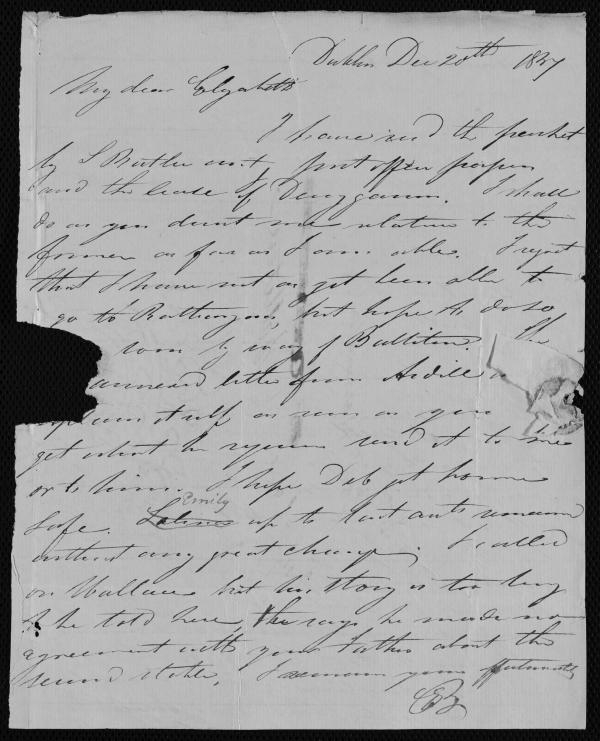 Dublin Dec 20th 1837
My dear Elizabeth
I have recd the packet
by S Butler cont post office papers
and the lease of Dunggannon. I shall
do as you direct me relative to the
former as far as I am able. I regret
that I have not as yet been able to
go to Rathangan, but hope to do so
soon by way of Ballitore. The
annexed letter from Ardill
explains itself as soon as you
get what he requires send it to me
or to him. I hope Deb got home
Emily
safe. up to last acts remained
without any great change. I called
on Wallace but his story is too long
to be told here, he says he made no
agreement with your Father about the
second stable. I remain yours affectionately